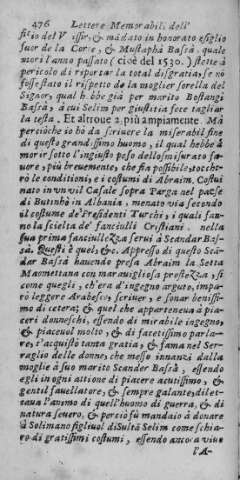 276 Lettere Memorabili dell'
ficio del Visir, & mādato in honorato esiglio
fuor de la Corte, & Mustaphà Bassà. quale
morì l'anno passato (cioè del 1530.) stette à
pericolo di riportar la total disgratia, se nō
fosse stato il rispetto de la moglie sorella del
Signor, qual h. bbe già per marito Bostangi
Bassà, à cui Selim per giustitia fece tagliar
la testa. Et altroue 2. più ampiamente. Mà
perciòche io hò da scriuere la miserabil fine
di questo grandissimo huomo, il qual hebbe à
morir sotto l'ingiusto peso dello smisurato fa-
uore, più breuemente, che sia possibile, toccht-
rò le conditioni, e i costumi di Abraim. Costui
nato in vn vil Casale sopra Parga nel paese
di Butinhò in Albania, menato via secondo
il costume de' Presidenti Turchi, i quali fan-
no la scielta de' fanciulli Cristiani. nella
sua prima fanciullezza seruì à Scandar Bas-
sà. Questi è quel, &c. Appresso di questo Scā-
dar Bassà hauendo presa Abraim la Setta
Maomettana con marauigliosa prestezza, sì
come quegli, ch'era d'ingegno arguto, impa-
rò leggere Arabesco, scriuer, e sonar benissi-
mo di cetera; & quel che apparteneua à pia-
ceri donneschi, essendo di mirabile ingegno,
& piaceuol molto, & di facetissimo parla-
re, s'acquistò tanta gratia, & fama nel Ser-
raglio delle donne, che messo innanzi dalla
moglie à suo marito Scander Bassà, essendo
egli in ogni attione di piacere acutissimo, &
gentil fauellatore, & sempre galante, dilet-
taua l'animo di quell'huomo di guerra, & di
natura seuero. & perciò fù mandato à donare
à Solimano figliuol di Sultā Selim come schia-
uo di gratissimi costumi, essendo anco a viue
l'A-